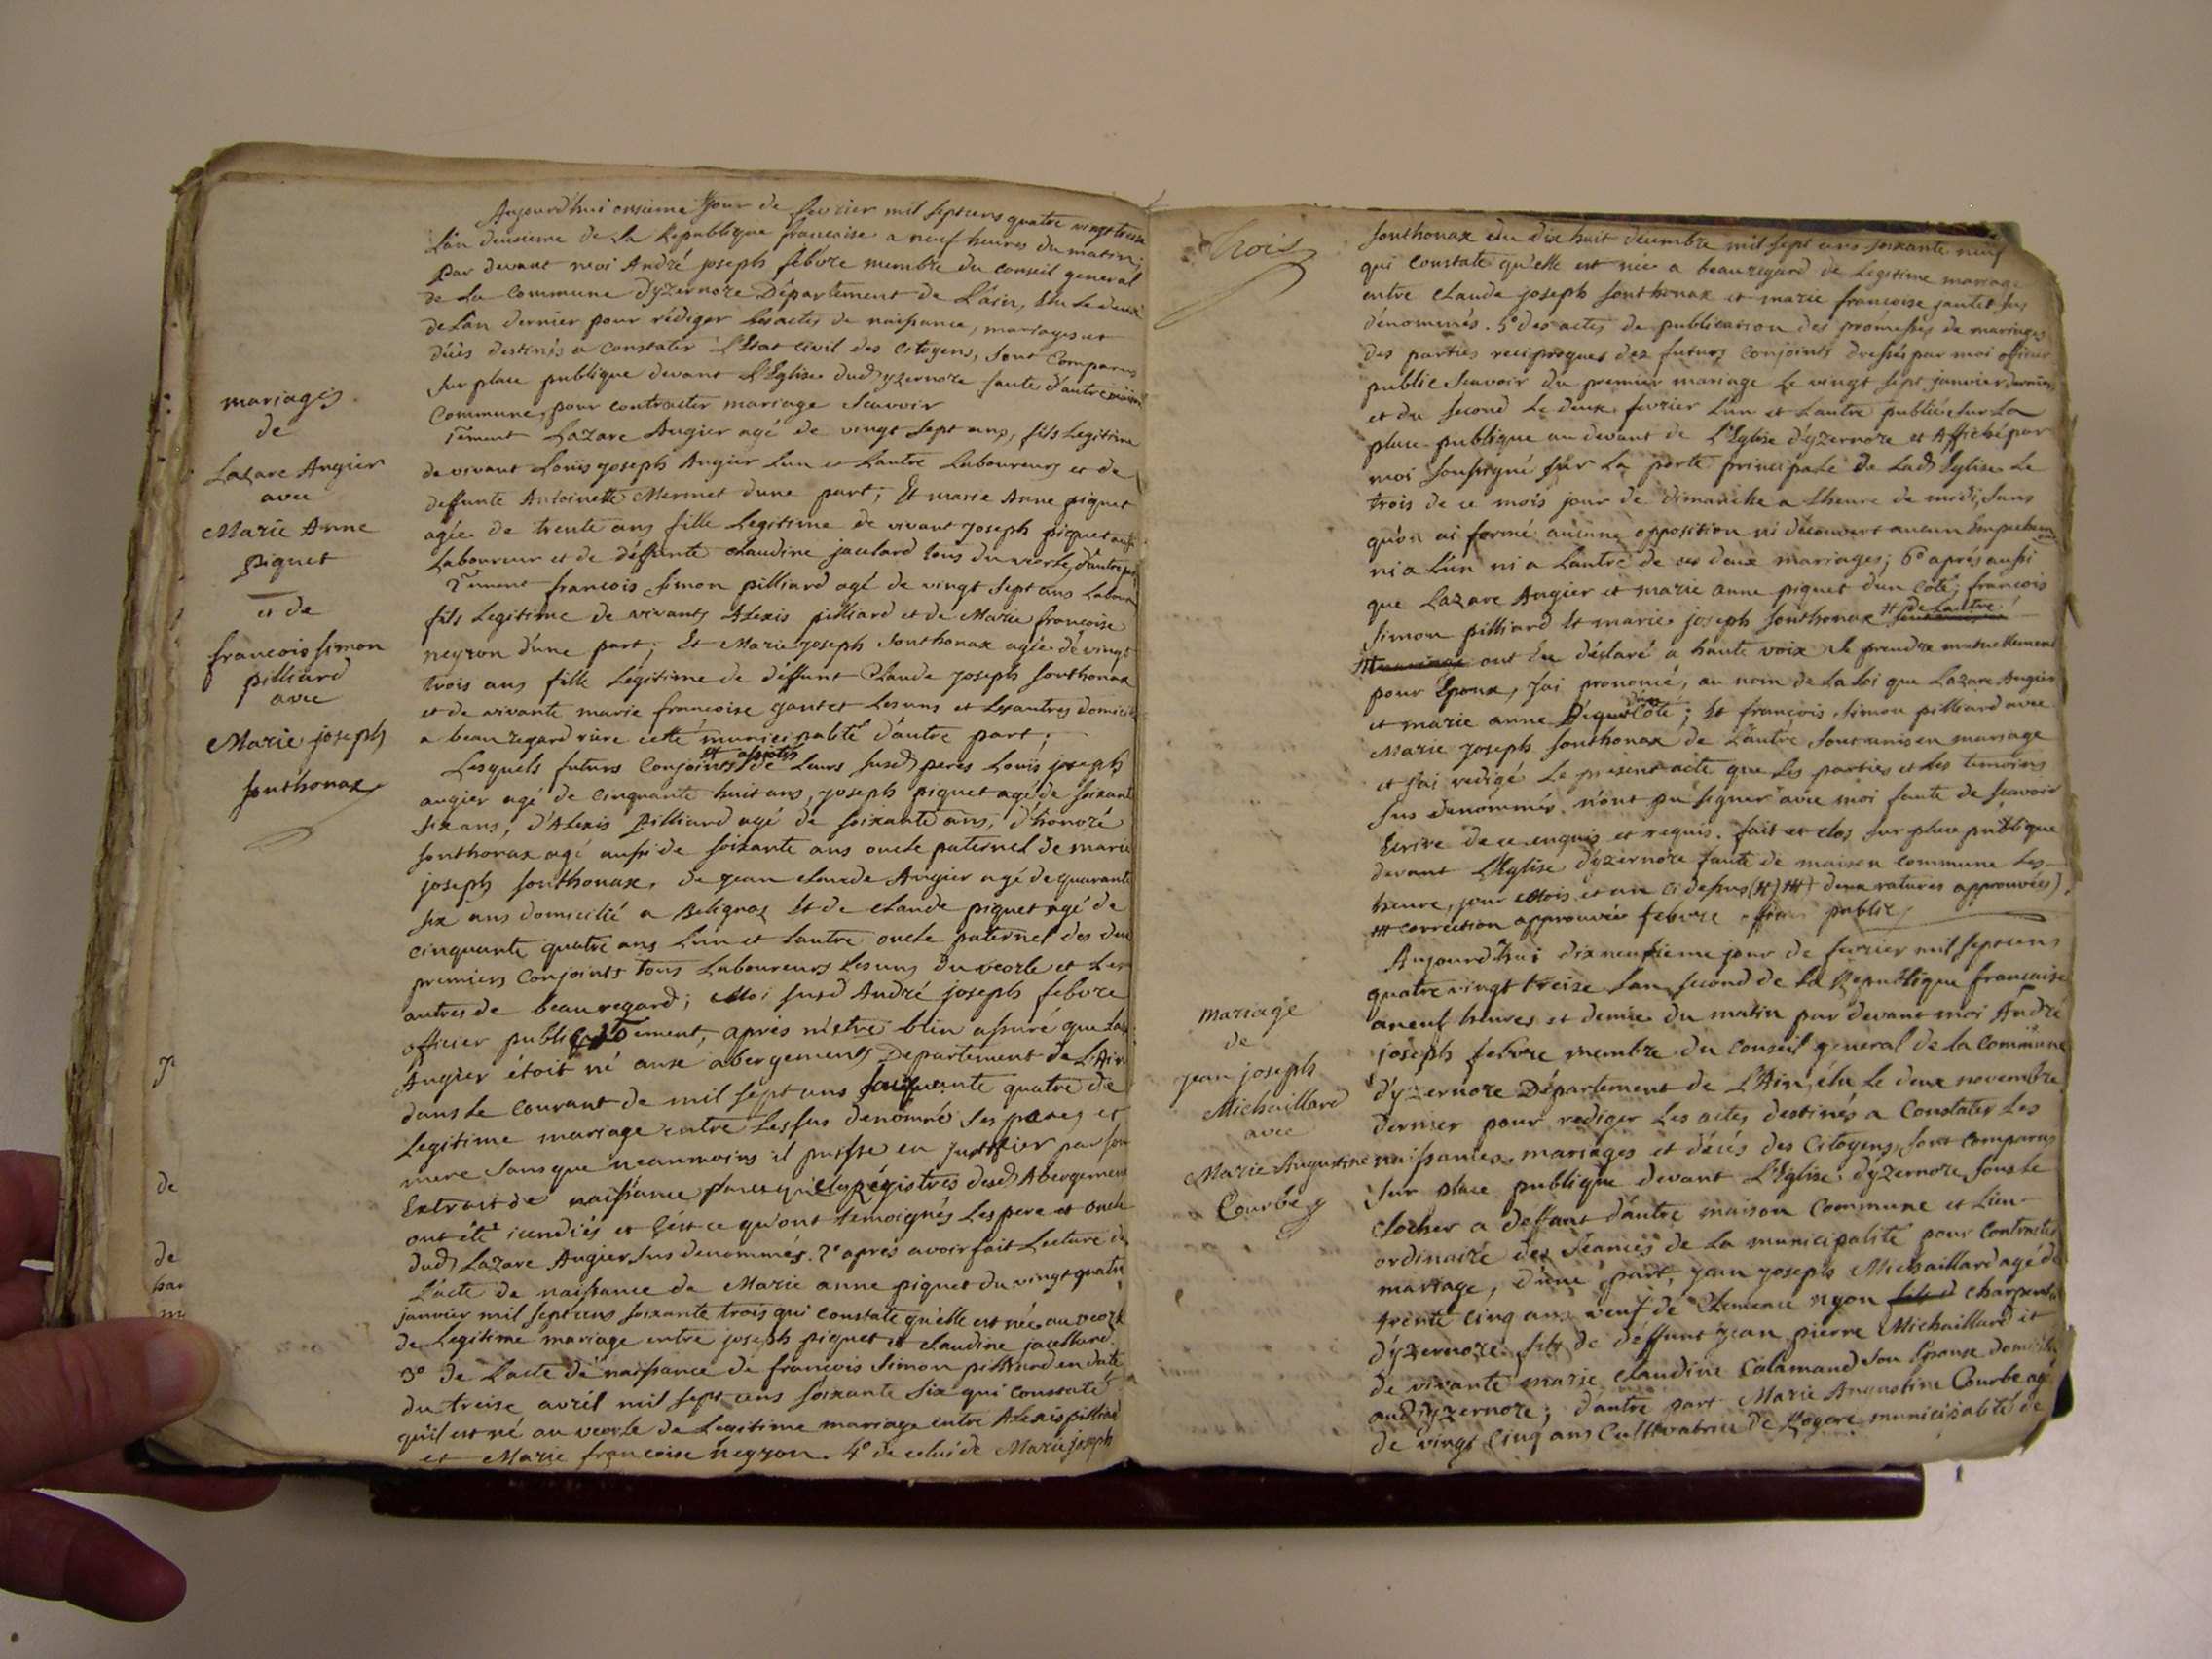 Aujourd'hui onsieme jour de fevrier mil septcens quatre vingt treise
L'an deusieme de la Republique francaise a neuf heures du matin;
par devant moi André joseph febvre membre du conseil general
de La Commune d'yzernore Département de L'ain, élu le deux
de L'an dernier pour rédiger les actes de naissance, mariages et
décès destinés a constater L'Etat civil des Citoyens, sont Comparus
sur place publique devant L'Eglise dud yzernore faute d'autre maison
Commune, pour contracter mariage scavoir
1ement Lazare Augier agé de vingt sept ans, fils Legitime
de vivant Louis joseph Augier Lun et Lautre Laboureurs et de
deffunte Antoinette Mermet dune part; Et marie Anne piquet
agée de trente ans fille Legitime de vivant joseph piquet aussi
Laboureur et de déffunte claudine jacelard tous du veorle, d'autre part
2ement francois simon pilliard agé de vingt sept ans Laboureur
fils Legitime de vivants Alexis pilliard et de Marie francoise
neyron d'une part; Et Marie joseph sonthonax agée de vingt
trois ans fille Legitime de déffunt Claude joseph sonthonax
et de vivante marie francoise gautet Les uns et Les autres domiciliés
a beauregard rière cette municipalité d'autre part;
Lesquels futurs Conjoints # assistés de Leurs susd peres Louis joseph
augier agé de cinquante huit ans, joseph piquet agé de soixante
six ans, d'Alexis Pilliard agé de soixante ans, d'honoré
sonthonax agé aussi de soixante ans oncle paternel de marie
joseph sonthonax, de jean claude Augier agé de quarante
six ans domicilié a Belignaz Et de claude piquet agé de
cinquante quatre ans Lun et Lautre oncle paternel des deux
premiers Conjoints tous Laboureurs Les uns du veorle et Les
autres de beauregard; Moi susd André joseph febvre
officier public 1ement, après m'etre bien assuré que Laz
Augier étoit né aux abergements Departement de L'Ain
dans le courant de mil sept cens soixante quatre de
Legitime mariage entre Les sus denommé ses peres et
mere sans que neanmoins il puisse en justifier par son
Extrait de naissance parcequ'e les régistres desd Abergemens
ont été icendiés et C'est ce qu'ont temoignés Les pere et oncle
dud Lazare Augier sus denommés. 2° après avoir fait Lecture de
L'acte de naissance de Marie anne piquet du vingt quatre
janvier mil sept cens soixante trois qui constate qu'elle est née au veorle
de Legitime mariage entre joseph piquet et claudine jacellard
3° de L'acte de naissance de francois simon pilliard en date
du treise avril mil sept cens soixante six qui constate
qu'il est né au veorle de Legitime mariage entre Alexis pilliard
et Marie francoise neyron. 4° de celui de Marie joseph
mariages
de
Lazare Augier
avec
Marie Anne
piquet
et de
francois simon
pilliard
avec
Marie joseph
sonthonax
trois
sonthonax du dix huit decembre mil sept cens soixante neuf
qui constate qu'elle est née a beauregard de Legitime mariage
entre claude joseph sonthonax et marie francoise gautet sus
dénommés. 5° des actes de publication des promesses de mariages
des parties reciproques des futurs conjoints dressés par moi officier
public scavoir du premier mariage Le vingt sept janvier dernier
et du second Le deux fevrier L'un et L'autre publiés sur La
place publique au devant de L'Eglise d'yzernore et Affiché par
moi soussigné sur La porte principale de Lad Eglise Le
trois de ce mois jour de Dimanche a L'heure de midi, sans
qu'on ai formé aucune opposition ni découvert aucun empechement
ni a L'un ni a Lautre de ces deux mariages; 6° après aussi
que Lazare Augier et marie anne piquet d'un Coté; francois
simon pilliard Et marie joseph sonthonax # de Lautre
ont eu déclaré a haute voix se prendre mutuellement
pour Epoux, J'ai prononcé, au nom de La Loi que Lazare Augier
et marie anne Piquet d'un Coté; Et francois simon pilliard avec
Marie joseph sonthonax de L'autre sont unis en mariage
et J'ai redigé Le present acte que Les parties et Les temoins
sus denommés n'ont pu signer avec moi faute de scavoir
Ecrire de ce enquis et requis. fait et clos sur place publique
devant L'Eglise d'yzernore faute de maison commune Les
heure, jour mois et an ci dessus (#) ## deux ratures approuvées),
### correction approuvée febvre officier public
Aujourd'hui dix neufieme jour de fevrier mil sept cens
quatre vingt treise L'an second de La Republique francaise
a neuf heures et demie du matin par devant moi André
joseph febvre membre du Conseil general de La Commune
d'yzernore Département de L'Ain, élu Le deux novembre
dernier pour rediger Les actes destinés a Constater Les
naissances, mariages et décès des Citoyens, sont Comparus
sur place publique devant L'Eglise d'yzernore sous Le
clocher a deffaut d'autre maison Commune et Lieu
ordinaire des seances de La municipalité pour Contracter
mariage, d'une part, jean joseph Michaillard agé de
trente cinq ans veuf de Clemence nyon charpentier
d'yzernore fils de déffunt jean pierre Michaillard et
de vivante marie claudine Calamand son Epouse domiciliés
aud yzernore; d'autre part Marie Augustine Courbe agée
de vingt Cinq ans Cultivatrice de municipalité de
mariage
de
jean joseph
Michaillard
avec
Marie Augustine
Courbe